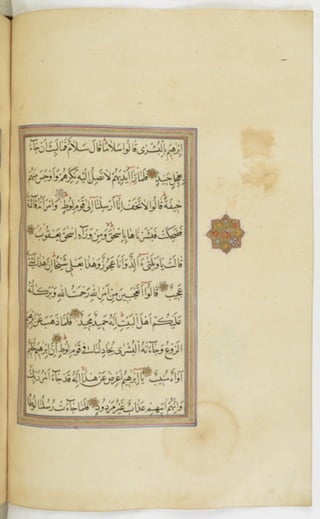 إبرهيم بالبشرى قالوا سلاما قال سلام فما لبث أن جاء
بعجل حنيذ فلما رآ أيديهم لا تصل إليه نكرهم وأوجس منهم
خيفة قالوا لا تخف إنا أرسلنا إلى قوم لوط وامرأته قائمة
فضحكت فبشرناها بإسحق ومن وراء إسحق يعقوب
قالت يا ويلتى ءألد وأنا عجوز وهذا بعلي شيخا إن هذا لشئ
عجيب قالوا أتعجبين من أمر الله رحمت الله وبركاته
عليكم أهل البيت إنه حميد مجيد فلما ذهب عن إبرهيم
الروع وجاءته البشرى يجادلنا في قوم لوط إن إبرهيم لحليم
أواه منيب يا إبرهيم أعرض عن هذا إنه قد جاء أمر ربك
وإنهم آتيهم عذاب غير مردود فلما جاءت رسلنا لوطا